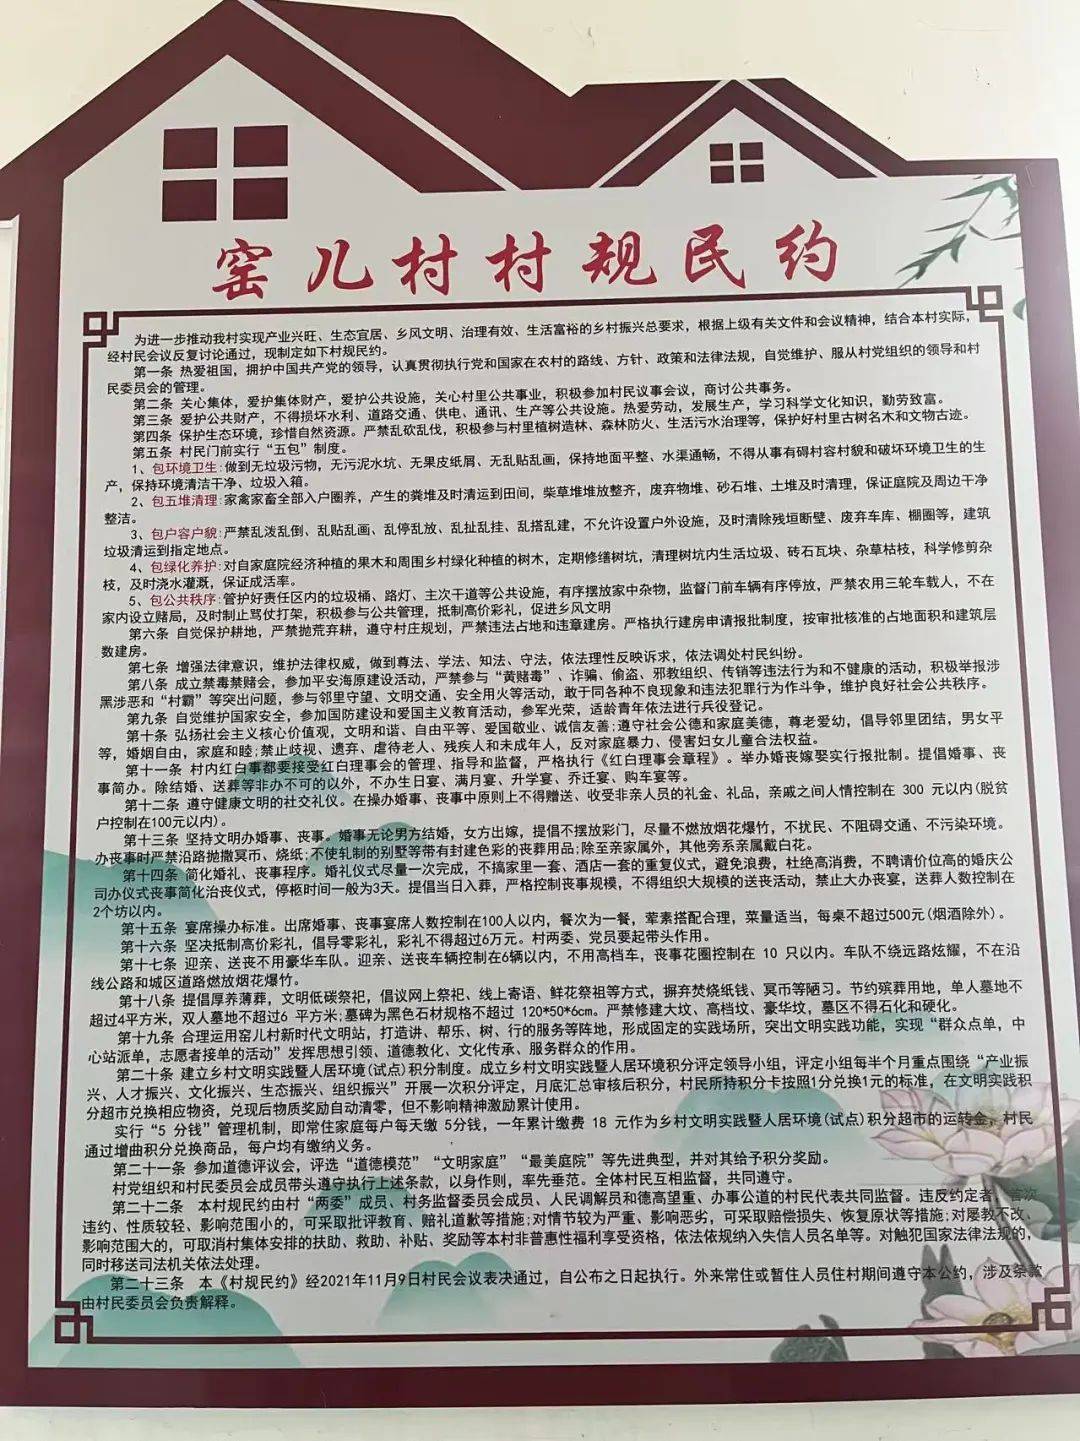 窑儿村村规民约
为进一步推动我村实现产业兴旺、生态宜居、乡风文明、治理有效、生活富裕的乡村振兴总要求，根据上级有关文件和会议精神，结合本村实际，
经村民会议反复讨论通过，现制定如下村规民约。
第一条 热爱祖国，拥护中国共产党的领导，认真贯彻执行党和国家在农村的路线、方针、政策和法律法规，自觉维护、服从村党组织的领导和村
民委员会的管理。
第二条 关心集体，爱护集体财产，爱护公共设施，关心村里公共事业，积极参加村民议事会议，商讨公共事务。
第三条 爱护公共财产，不得损坏水利、道路交通、供电、通讯、生产等公共设施。热爱劳动，发展生产，学习科学文化知识，勤劳致富。
第四条 保护生态环境，珍惜自然资源。严禁乱砍乱伐，积极参与村里植树造林、森林防火、生活污水治理等，保护好村里古树名木和文物古迹。
第五条 村民门前实行“五包”制度。
1、包环境卫生:做到无垃圾污物，无污泥水坑、无果皮纸屑、无乱贴乱画，保持地面平整、水渠通畅，不得从事有碍村容村貌和破坏环境卫生的生
产，保持环境清洁干净、垃圾入箱。
2、包五堆清理:家禽家畜全部入户圈养，产生的粪堆及时清运到田间，柴草堆堆放整齐，废弃物堆、砂石堆、土堆及时清理，保证庭院及周边干净
整洁。
3、包户容户貌:严禁乱泼乱倒、乱贴乱画、乱停乱放、乱扯乱挂、乱搭乱建，不允许设置户外设施，及时清除残垣断壁、废弃车库、棚圈等，建筑
垃圾清运到指定地点。
4、包绿化养护:对自家庭院经济种植的果木和周围乡村绿化种植的树木，定期修缮树坑，清理树坑内生活垃圾、砖石瓦块、杂草枯枝，科学修剪杂
枝，及时浇水灌溉，保证成活率。
5、包公共秩序:管护好责任区内的垃圾桶、路灯、主次干道等公共设施，有序摆放家中杂物，监督门前车辆有序停放，严禁农用三轮车载人，不在
家内设立赌局，及时制止骂仗打架，积极参与公共管理，抵制高价彩礼，促进乡风文明
第六条 自觉保护耕地，严禁抛荒弃耕，遵守村庄规划，严禁违法占地和违章建房。严格执行建房申请报批制度，按审批核准的占地面积和建筑层
数建房。
第七条 增强法律意识，维护法律权威，做到尊法、学法、知法、守法，依法理性反映诉求，依法调处村民纠纷。
第八条 成立禁毒禁赌会，参加平安海原建设活动，严禁参与“黄赌毒”、诈骗、偷盗、邪教组织、传销等违法行为和不健康的活动，积极举报涉
黑涉恶和“村霸”等突出问题，参与邻里守望、文明交通、安全用火等活动，敢于同各种不良现象和违法犯罪行为作斗争，维护良好社会公共秩序。
第九条 自觉维护国家安全，参加国防建设和爱国主义教育活动，参军光荣，适龄青年依法进行兵役登记。
第十条 弘扬社会主义核心价值观，文明和谐、自由平等、爱国敬业、诚信友善;遵守社会公德和家庭美德，尊老爱幼，倡导邻里团结，男女平
等，婚姻自由，家庭和睦;禁止歧视、遗弃、虐待老人、残疾人和未成年人，反对家庭暴力、侵害妇女儿童合法权益。
第十一条 村内红白事都要接受红白理事会的管理、指导和监督，严格执行《红白理事会章程》。举办婚丧嫁娶实行报批制。提倡婚事、丧
事简办。除结婚、送葬等非办不可的以外，不办生日宴、满月宴、升学宴、乔迁宴、购车宴等。
第十二条 遵守健康文明的社交礼仪。在操办婚事、丧事中原则上不得赠送、收受非亲人员的礼金、礼品，亲戚之间人情控制在 300 元以内(脱贫
户控制在100元以内)。
第十三条 坚持文明办婚事、丧事。婚事无论男方结婚，女方出嫁，提倡不摆放彩门，尽量不燃放烟花爆竹，不扰民、不阻碍交通、不污染环境。
办丧事时严禁沿路抛撒冥币、烧纸;不使轧制的别墅等带有封建色彩的丧葬用品;除至亲家属外，其他旁系亲属戴白花。
第十四条 简化婚礼、丧事程序。婚礼仪式尽量一次完成，不搞家里一套、酒店一套的重复仪式，避免浪费，杜绝高消费，不聘请价位高的婚庆公
司办仪式丧事简化治丧仪式，停柩时间一般为3天。提倡当日入葬，严格控制丧事规模，不得组织大规模的送丧活动，禁止大办丧宴，送葬人数控制在
2个坊以内。
第十五条 宴席操办标准。出席婚事、丧事宴席人数控制在100人以内，餐次为一餐，荤素搭配合理，菜量适当，每桌不超过500元(烟酒除外)。
第十六条 坚决抵制高价彩礼，倡导零彩礼，彩礼不得超过6万元。村两委、党员要起带头作用。
第十七条 迎亲、送丧不用豪华车队。迎亲、送丧车辆控制在6辆以内，不用高档车，丧事花圈控制在 10 只以内。车队不绕远路炫耀，不在沿
线公路和城区道路燃放烟花爆竹。
第十八条 提倡厚养薄葬，文明低碳祭祀，倡议网上祭祀、线上寄语、鲜花祭祖等方式，摒弃焚烧纸钱、冥币等陋习。节约殡葬用地，单人墓地不
超过4平方米，双人墓地不超过6 平方米;墓碑为黑色石材规格不超过 120*50*6cm。严禁修建大坟、高档坟、豪华坟，墓区不得石化和硬化。
第十九条 合理运用窑儿村新时代文明站，打造讲、帮乐、树、行的服务等阵地，形成固定的实践场所，突出文明实践功能，实现“群众点单，中
心站派单，志愿者接单的活动”发挥思想引领、道德教化、文化传承、服务群众的作用。
第二十条 建立乡村文明实践暨人居环境(试点)积分制度。成立乡村文明实践暨人居环境积分评定领导小组，评定小组每半个月重点围绕“产业振
兴、人才振兴、文化振兴、生态振兴、组织振兴”开展一次积分评定，月底汇总审核后积分，村民所持积分卡按照1分兑换1元的标准，在文明实践积
分超市兑换相应物资，兑现后物质奖励自动清零，但不影响精神激励累计使用。
实行“5 分钱”管理机制，即常住家庭每户每天缴 5分钱，一年累计缴费 18 元作为乡村文明实践暨人居环境(试点)积分超市的运转金，村民
通过增曲积分兑换商品，每户均有缴纳义务。
第二十一条 参加道德评议会，评选“道德模范” “文明家庭” “最美庭院”等先进典型，并对其给予积分奖励。
村党组织和村民委员会成员带头遵守执行上述条款，以身作则，率先垂范。全体村民互相监督，共同遵守。
第二十二条 本村规民约由村“两委”成员、村务监督委员会成员、人民调解员和德高望重、办事公道的村民代表共同监督。违反约定者，首次
违约、性质较轻、影响范围小的，可采取批评教育、赔礼道歉等措施;对情节较为严重、影响恶劣，可采取赔偿损失、恢复原状等措施;对屡教不改、
影响范围大的，可取消村集体安排的扶助、救助、补贴、奖励等本村非普惠性福利享受资格，依法依规纳入失信人员名单等。对触犯国家法律法规的，
同时移送司法机关依法处理。
第二十三条 本《村规民约》经2021年11月9日村民会议表决通过，自公布之日起执行。外来常住或暂住人员住村期间遵守本公约，涉及条款
由村民委员会负责解释。